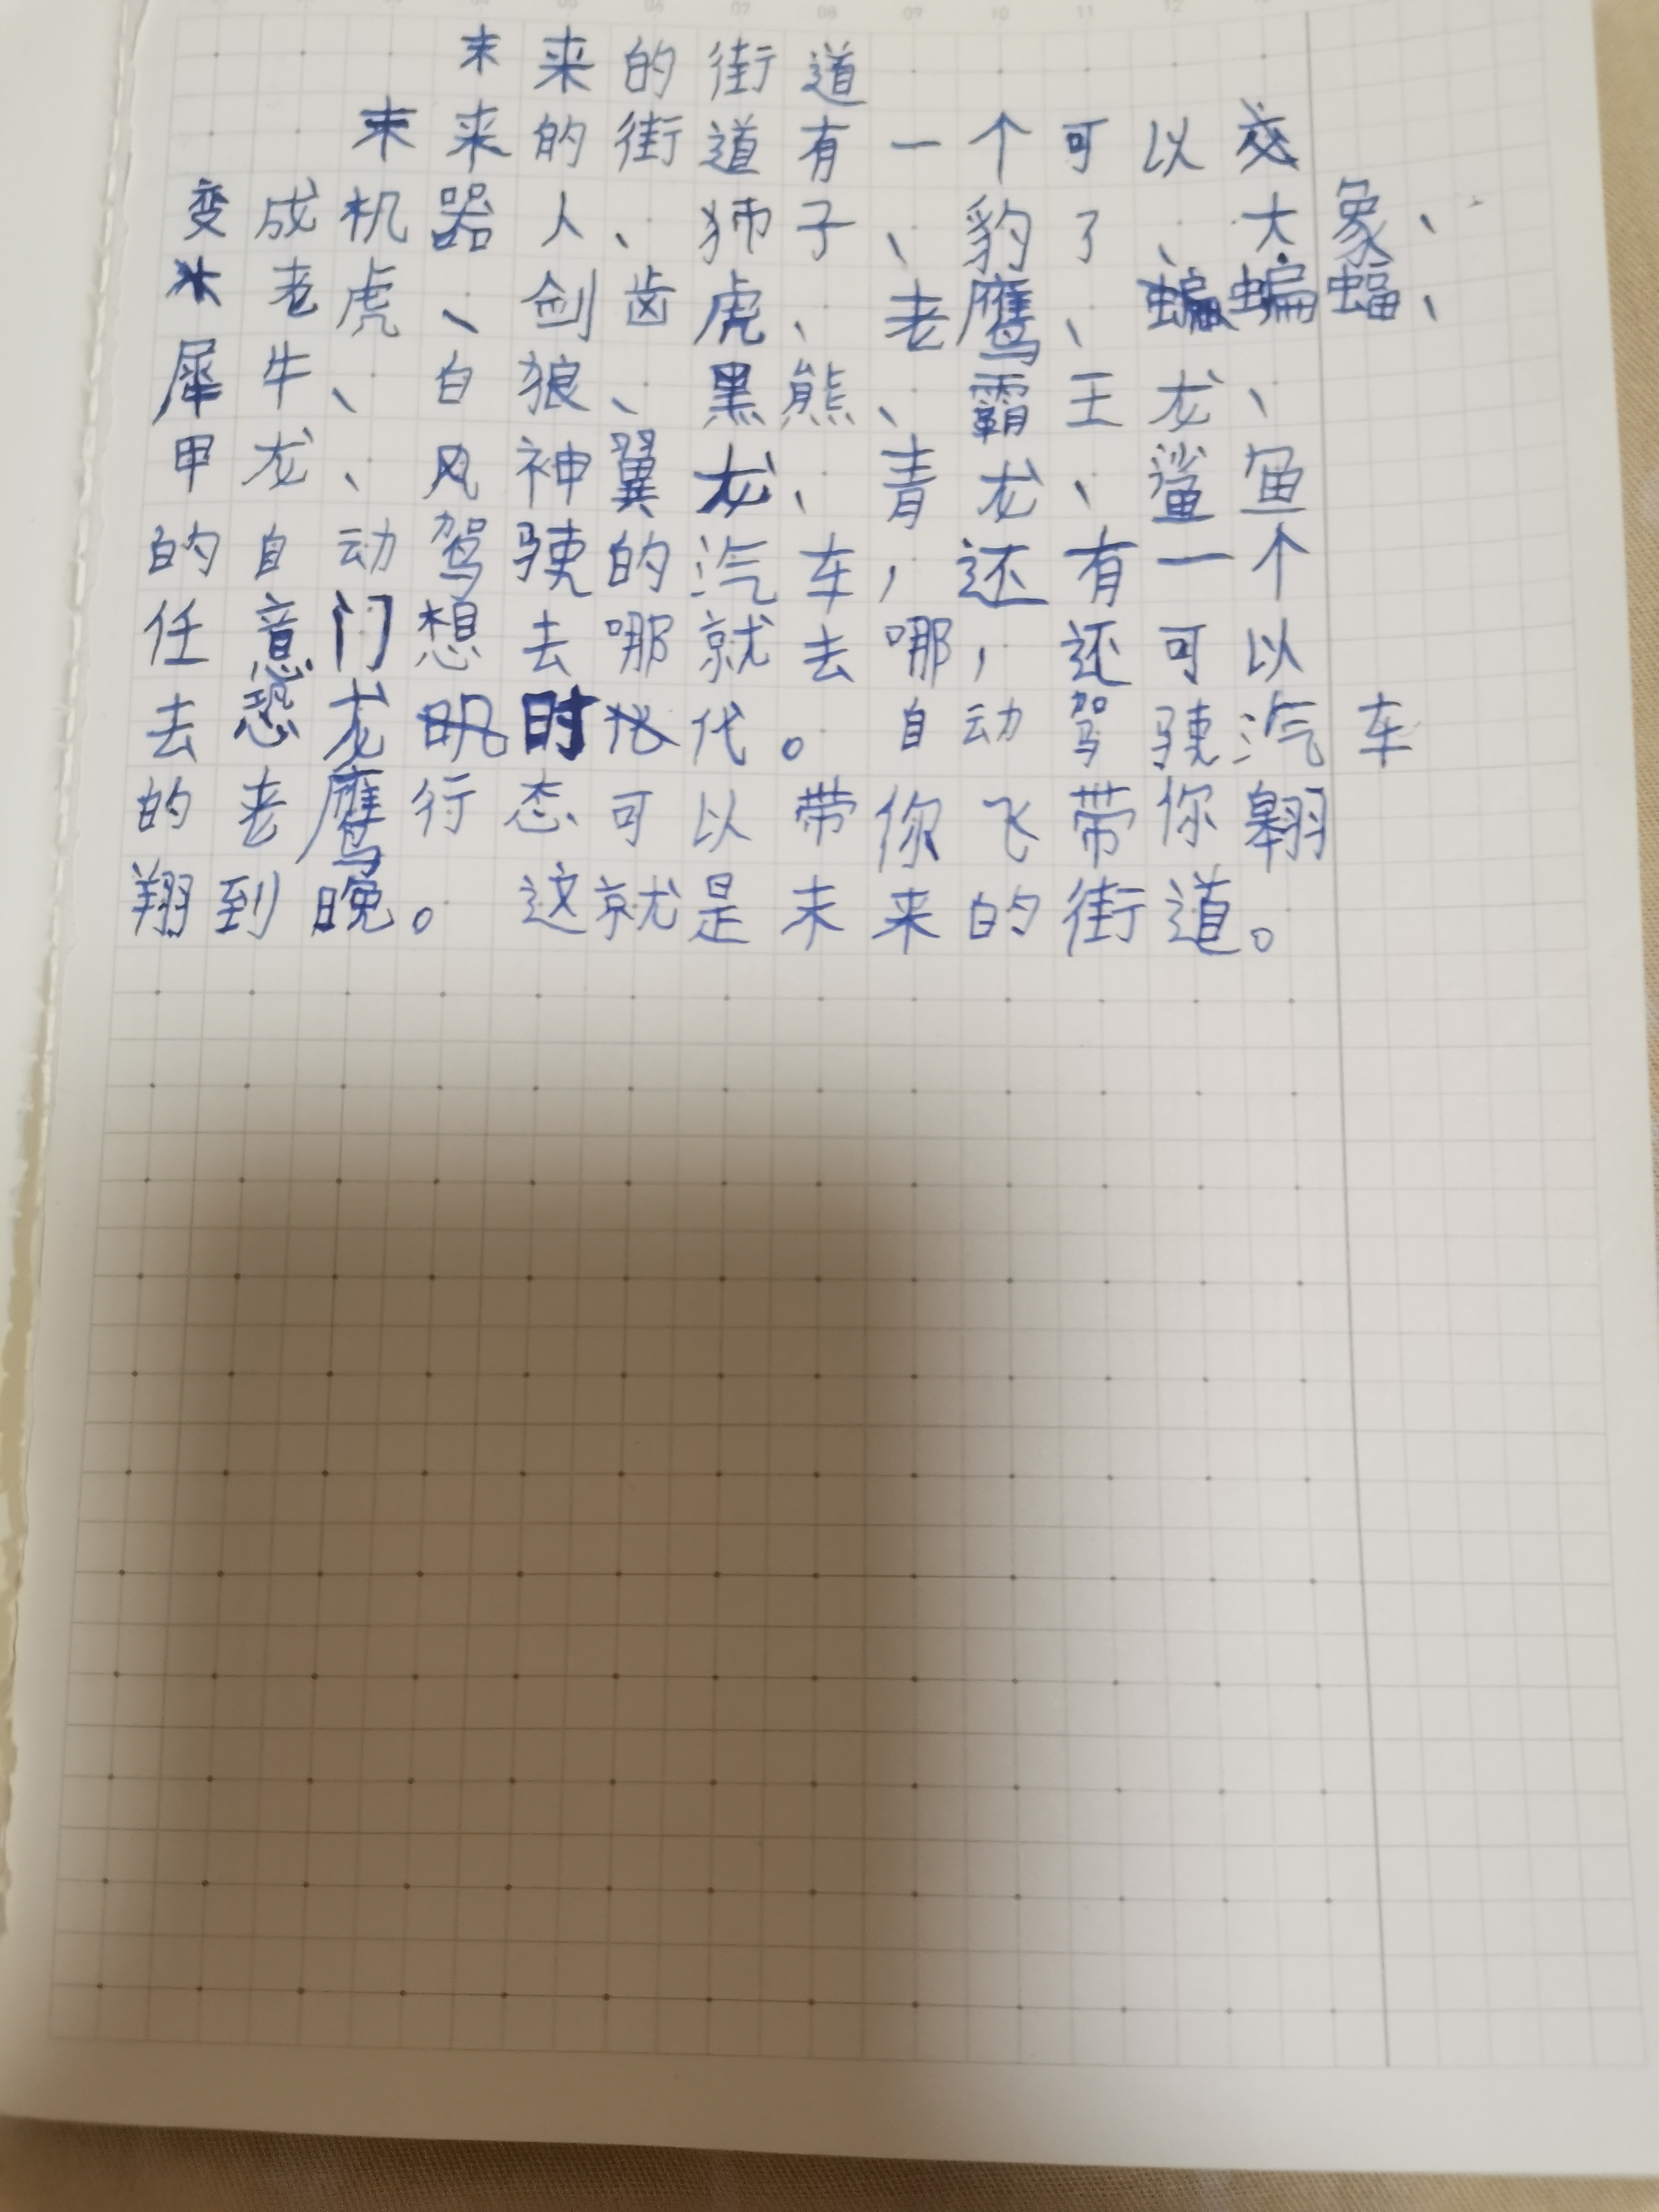 未来的街道
未来的街道有一个可以
变成机器人、狮子、豹了、大象、
老虎、剑齿虎、老鹰、蝙蝠、
犀牛、白狼、黑熊、霸王龙、
甲龙、风神翼龙、青龙、鲨鱼
的自动驾驶的汽车，还有一个
任意门想去哪就去哪，还可以
去恐龙时代。自动驾驶汽车
的老鹰行态可以带你飞带你翱
翔到晚。这就是未来的街道。